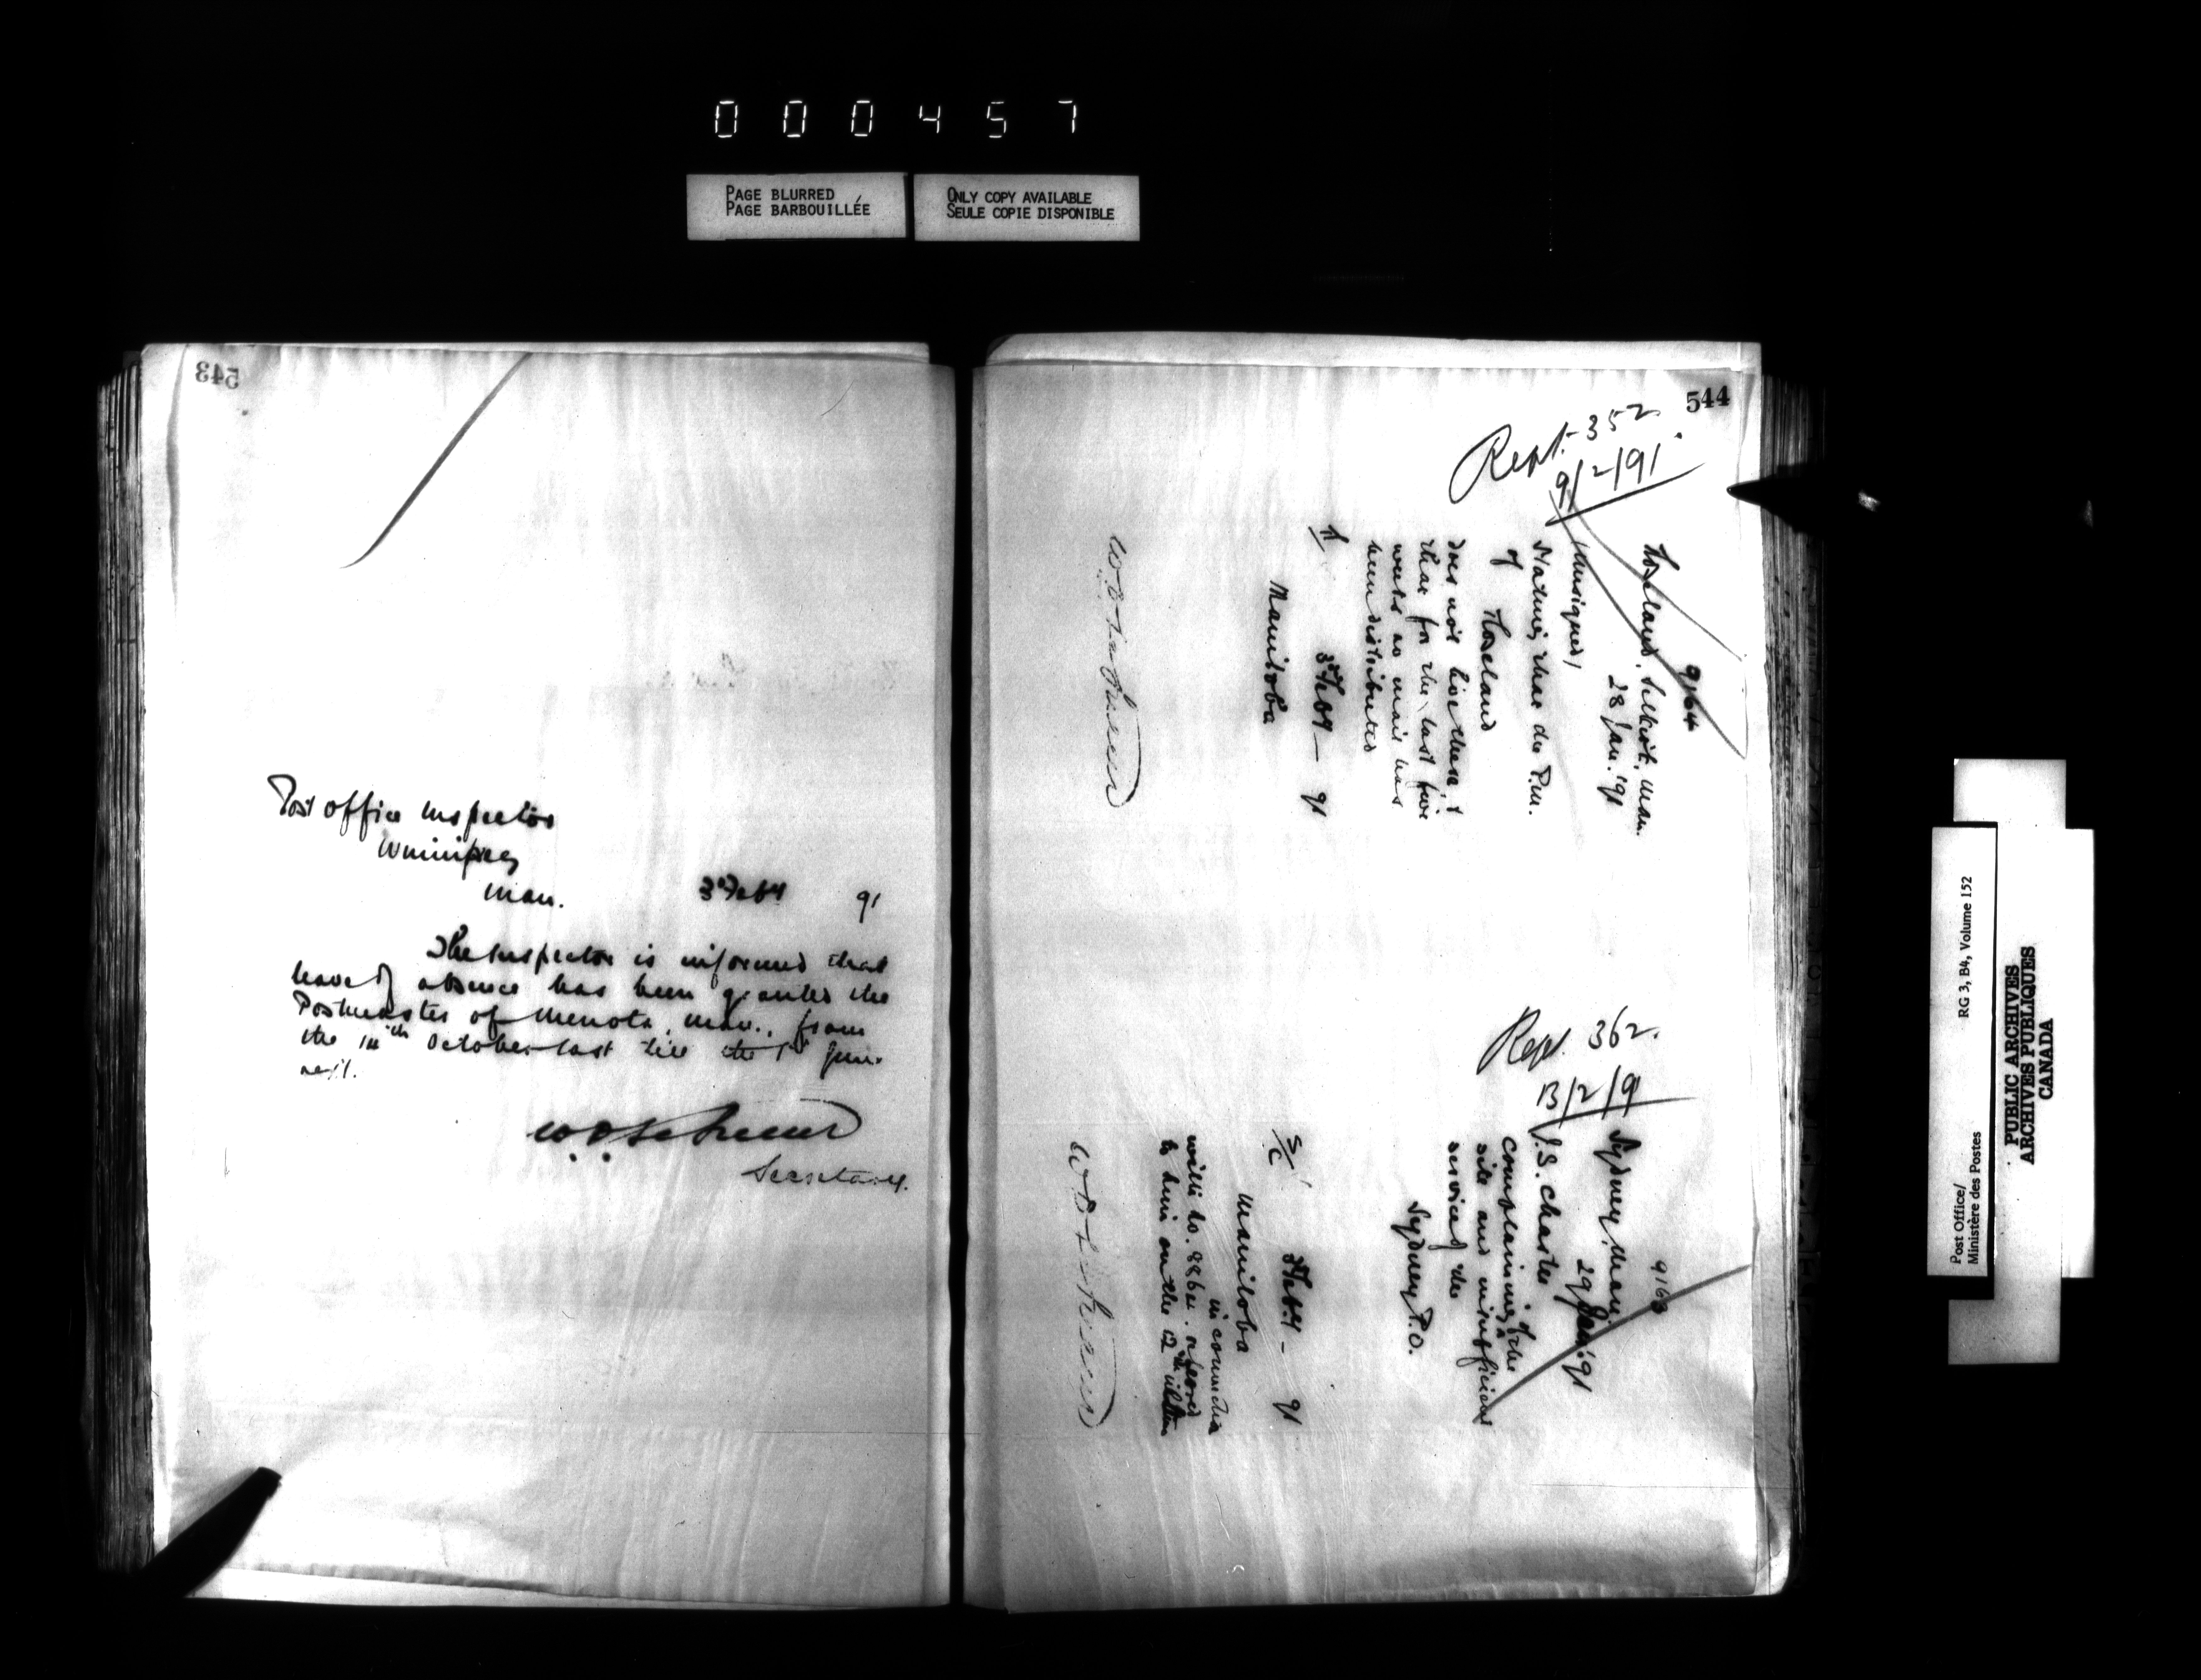 000457
PAGE BLURRED
PAGE BARBOUILLÉE
ONLY COPY AVAILABLE
SEULE COPIE DISPONIBLE
543
Post Office Inspector
Winnipeg
Man.
3 Feby 91
The Inspector is informed that
leave of absence has been granted the
Postmaster of Menota, Man., from
the October last till the 1st
next.
Secretary.
544
Rept. 352.
9/2/91.
9164
Selkirk, Man.
28 Jan. '91
Unsigned,
Stating that the P.M.
of
does not live there, &
that for the last five
weeks no mail has
been distributed
3 Feby - 91
Manitoba
Rept. 362.
13/2/91
9163
Sydney, Man.
29 Jan. '91
J.S. Chaster
Complaining of the
site and inefficient
service of the
Sydney P.O.
S/C
3 Feby - 91
Manitoba
in connection
with No. referred
to him on the 12th ultimo
Post Office/
Ministère des Postes
RG 3, B4, Volume 152
PUBLIC ARCHIVES
ARCHIVES PUBLIQUES
CANADA